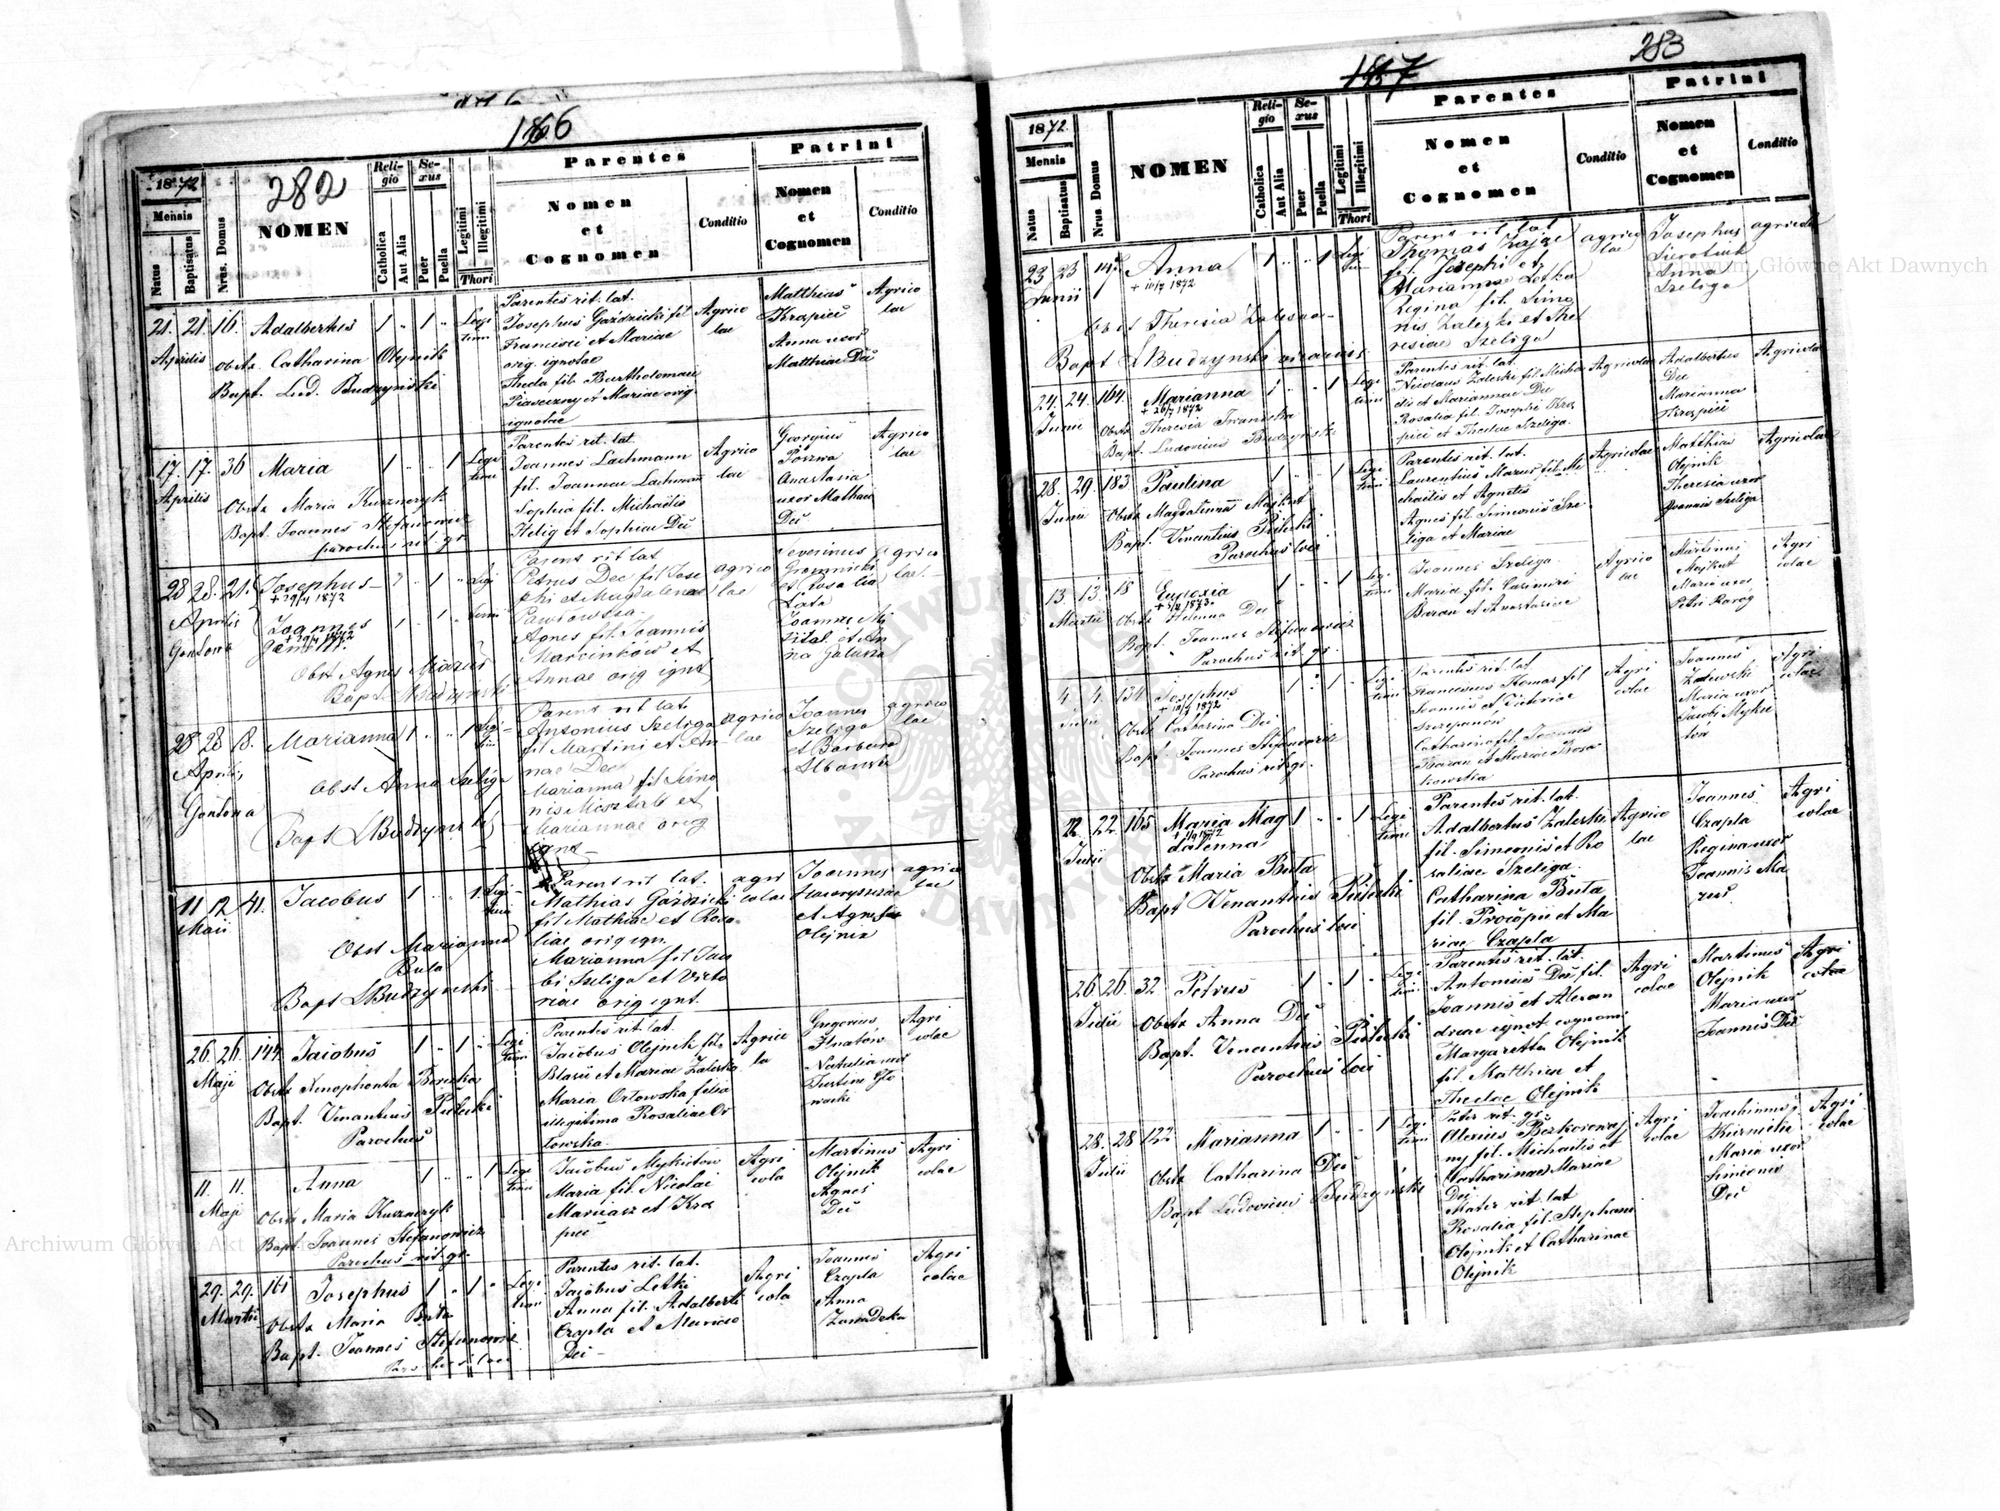 166
1872
282
Mensis
Natus
Baptisatus
Nrus. Domus
NOMEN
Religio
Catholica
Aut Alia
Sexus
Puer
Puella
Legitimi
Illegitimi
Thori
Parentes
Nomen
et
Cognomen
Conditio
Patrini
Nomen
et
Cognomen
Conditio
21. 21. 16. Adalbertus 1 " 1 "
Aprilis
Obstz Catharina Olejnik
Bapt. Lud. Budzyński
Legi
timi
Parentes rit. lat.
Josephus Gaździcki fil
Francisci et Mariae
orig. ignotae
Thecla fil. Bartholomaei
Piaseczny et Mariae orig
ignotae
Agrico
lae
Matthias
Krzpieć
Anna uxor
Matthiae Deć
Agrico
lae
17. 17. 36 Maria 1 " " 1
Aprilis
Obstz Maria Kuszneryk
Bapt. Joannes Stefanowicz
parochus rit. gr.
Legi
timi
Parentes rit. lat.
Joannes Lachmann
fil. Joannes Lachmann
Sophia fil. Michaelis
Helig et Sophiae Deć
Agrico
lae
Georgius
Anastasia
uxor Mathaei
Deć
Agrico
lae
28 28. 21. Josephus
+ 29/4 1872
Aprilis
Gontowa
Joannes
gemelli
Obst Agnes Mazur
Bapt LBudzynski
Legi
timi
Parent rit lat
Petrus Dec fil Jose
phi et Magdalenae
Pawłowska
Agnes fil. Joannis
Marcinków et
Annae orig ignt
agrico
lae
Severinus
Gromnicki
et Rosalia
Joannes Mi
na Galusza
agrico
lae
28 28 18. Marianna 1 " " 1
Aprilis
Gontowa
Obst Anna Szeliga
Bapt LBudzynski
Legi
timi
Parent rit lat
Antonius Szeliga
fil Martini et An
nae Dec
Marianna fil Simo
nis Misztal et
Mariannae orig
ignt
agrico
lae
Joannes
Szeliga
et Barbara
Albańska
agrico
lae
11 12. 41. Jacobus 1
Maii
Obst Marianna
Buta
Bapt LBudzynski
Legi
timi
Parent rit lat.
Mathias Gaździcki
fil Mathiae et Rosa
liae orig ign.
Marianna fil Jaco
bi Szeliga et Victo
riae orig ignt.
agri
colae
Joannes
et Agnes
Olejnik
agrico
lae
26. 26. 144. Jacobus 1 " 1 "
Maji
Obstz Xenophonta Bereska
Bapt. Venantius Pilecki
Parochus
Legi
timi
Parentes rit. lat.
Jacobus Olejnik fil.
Blasii et Mariae Zaleska
Maria Orłowska filia
illegitima Rosaliae Or
łowska.
Agrico
la
Gregorius
Hnatów
Natalia uxor
Justini Gło
wacki
Agri
colae
11. 11. Anna 1 " " 1
Maji
Obstz Maria Kusznaryk
Bapt. Joannes Stefanowicz
Parochus rit. gr.
Legi
timi
Jacobus Mykitów
Maria fil. Nicolai
Mariasz et Krz
pieć
Agri
cola
Martinus
Olejnik
Agnes
Deć
Agri
colae
29. 29. 161 Josephus 1 " 1 "
Martii
Obstz Maria Buta
Bapt. Joannes Stefanowicz
Parochus loci
Legi
timi
Parentes rit. lat.
Jacobus Letki
Anna fil. Adalberti
Czapla et Mariae
Deć
Agri
cola
Joannes
Czapla
Anna
Zawadzka
Agri
colae
167
283
1872.
Mensis
Natus
Baptisatus
Nrus. Domus
NOMEN
Religio
Catholica
Aut Alia
Sexus
Puer
Puella
Legitimi
Illegitimi
Thori
Parentes
Nomen
et
Cognomen
Conditio
Patrini
Nomen
et
Cognomen
Conditio
23 23 Anna 1 " " 1
+ 10/7 1872
Junii
Obst Theresia Zaleska
Bapt LBudzynski vicarius
Legi
timi
Parent rit lat
Thomas Zając
fil. Josephi et
Mariannae Letka
Regina fil. Simo
nis Zaleski et The
resiae Szeliga
agrico
lae
Josephus
Sierotiuk
Anna
Szeliga
agricolae
24. 24. 164. Marianna 1 " " 1
+ 26/7 1872
Junii
Obstz Theresia Iwanicka
Bapt. Ludovicus Budzyński
Legi
timi
Parentes rit. lat.
Nicolaus Zaleski fil. Micha
elis et Mariannae Deć
Rosalia fil. Josephi Krz
pieć et Theclae Szeliga.
Agricolae
Adalbertus
Deć
Marianna
Krzpieć
Agricolae
28. 29. 183 Paulina 1 " " 1
Junii
Obstz Magdalena Majkut
Bapt. Venantius Pilecki
Parochus loci
Legi
timi
Parentes rit. lat.
Laurentius Mazur fil. Mi
chaelis et Agnetis
Agnes fil. Simeonis Sze
liga et Mariae
Agricolae
Matthias
Olejnik
Theresia uxor
Joannis Szeliga
Agricolae
13. 13. 18 Eudoxia 1 " " 1
Martii
Obstz Helena Deć
Bapt. Joannes Stefanowicz
Parochus rit. gr.
Legi
timi
Joannes Szeliga.
Maria fil. Casimiri
Baran et Anastasiae
Agrico
lae
Martinus
Majkut
Maria uxor
Petri Karog
Agri
colae
4. 4. 134 Josephus 1 " 1 "
+ 10/7 1872
Julii
Obstz Catharina Deć
Bapt. Joannes Stefanowicz
Parochus rit. gr.
Legi
timi
Parentes rit. lat.
Franciscus Homas fil
Joannis et Victoriae
Szczepanów
Catharina fil. Joannis
Baran et Mariae Rosa
kowska
Agri
colae
Joannes
Zalewski
Maria uxor
Jacobi Myku
łów
Agri
colae
22. 22. 165 Maria Mag 1 " " 1
dalenna
Julii
Obstz Maria Buta
Bapt Venantius Pilecki
Parochus loci
Legi
timi
Parentes rit. lat.
Adalbertus Zaleski
fil. Simeonis et Ro
saliae Szeliga.
Catharina Buta
fil. Procopii et Ma
riae Czapla
Agrico
lae
Joannes
Czapla
Regina uxor
Joannis Ma
zur
Agri
colae
26. 26. 32 Petrus 1 " 1 "
Julii
Obstz Anna Deć
Bapt. Venantius Pilecki
Parochus loci
Legi
timi
Parentes rit. lat.
Antonius Deć fil.
Joannis et Alexan
driae ignot. cognomi
Margaretha Olejnik
fil. Matthiae et
Theclae Olejnik
Agri
colae
Martinus
Olejnik
Maria uxor
Joannis Deć
Agri
colae
28. 28 122 Marianna 1 " " 1
Julii
Obstz Catharina Deć
Bapt Ludovicus Budzyński
Legi
timi
Pater rit. gr.
Alexius Bezkorowaj
ny fil. Michaelis et
Catharinae Mariae
Deć
Mater rit. lat
Rosalia fil. Stephani
Olejnik et Catharinae
Olejnik
Agri
colae
Joachimus
Kiernicki
Maria uxor
Simeonis
Deć
Agri
colae
Archiwum Główne Akt Dawnych
Archiwum Główne Akt Dawnych
ARCHIWUM GŁÓWNE AKT DAWNYCH